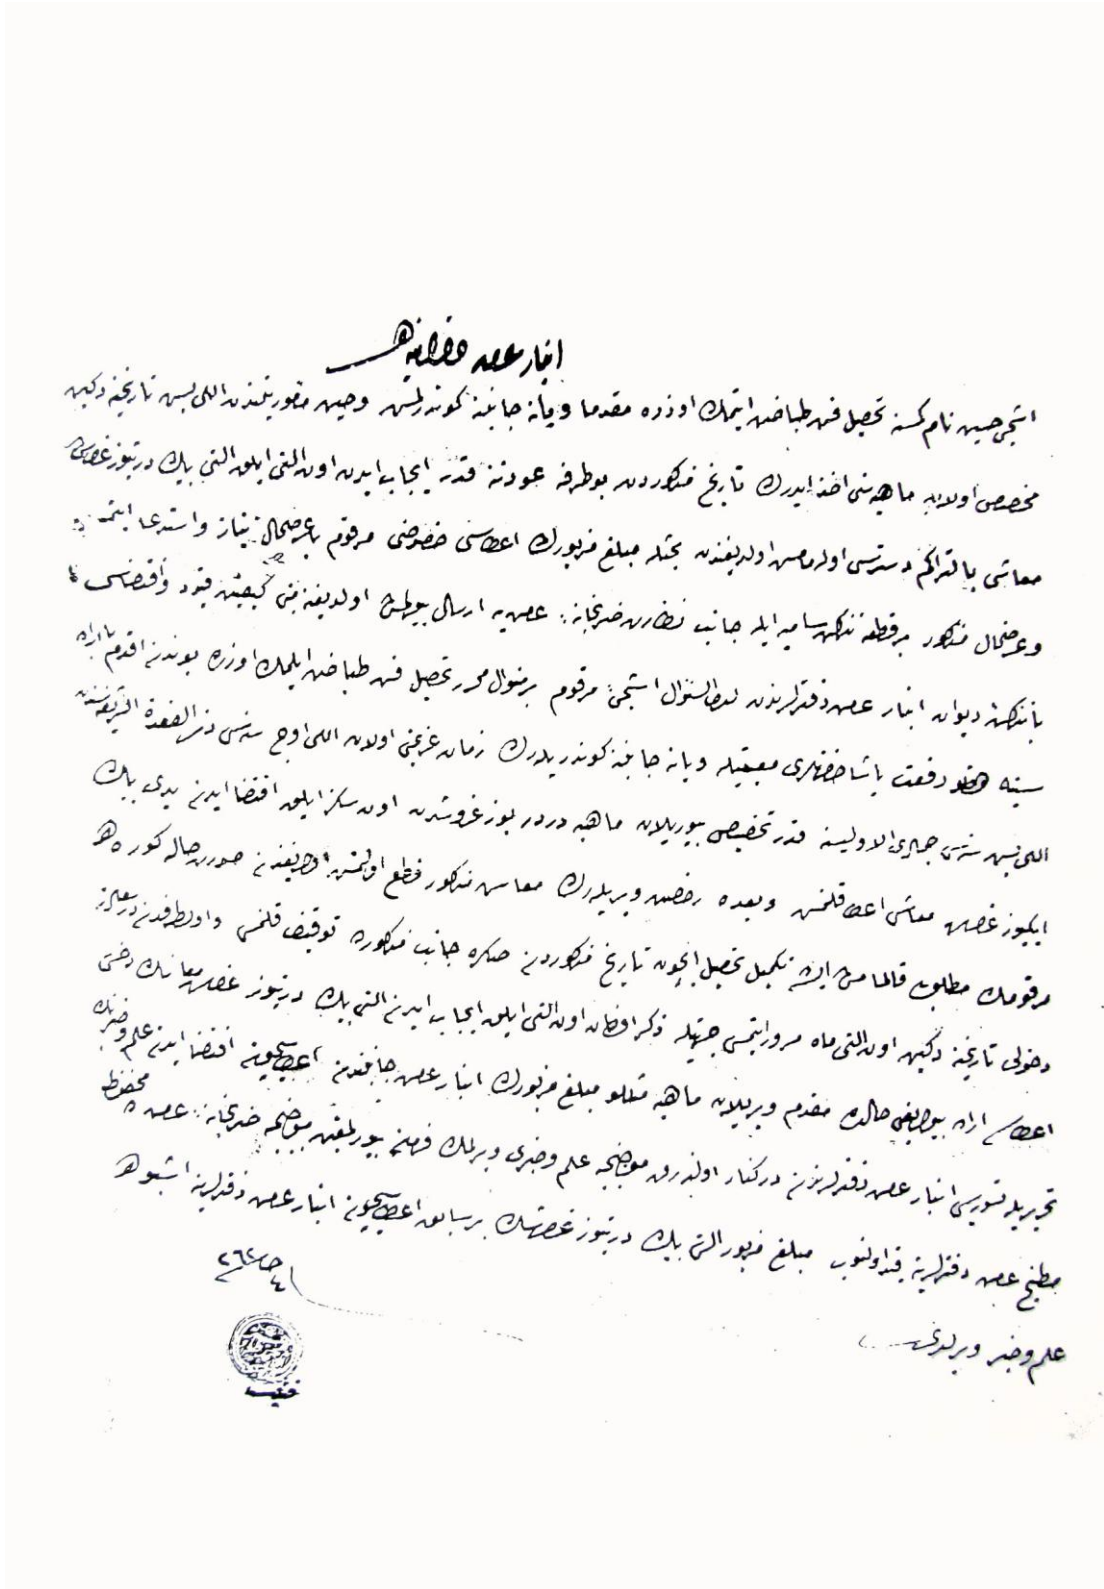 انبار عامره
اشجی حسین نام کمسنه تحصیل فن طباخی ایتمك اوزره مقدما ویانه جانبنه كوندرلمش وحین مقرریتندن اللی بش تاریخنه دكین
مخصص اولان ماهیه سنی اخذ ایدرك تاریخ مذكوردن بو طرفه عودتنه قدر ایجاب ایدن اون التی ایلق التی بیك درتیوز غروش
معاشی بالتراكم دسترسی اوله مامش اولدیغندن بحثله مبلغ مزبورك اعطاسی خصوصنی مرقوم باعرضحال نیاز واستدعا ایتمش
وعرضحال مذكور بر قطعه تذكره سامیه ایله جانب نظارت ضربخانه عامره یه ارسال بیورلمش اولدیغنه مبنی كیفیتی قیود واقتضاسی
باتذكره دیوان انبار عامره دفترلرندن لدی السؤال اشجی مرقوم بر منوال محرر تحصیل فن طباخی ایلمك اوزره بوندن اقدم با اراده
سنیه رفعت پاشا حضرتلری معیتیله ویانه جانبنه كوندریلرك زمان عزیمتی اولان اللی اوچ سنه سی ذی القعدة الشریفه سندن
اللی بش سنه سی جمادی الاولیسنه قدر تخصیص بیوریلان ماهیه دردر یوز غروشدن اون سكز ایلق اقتضا ایدن یدی بیك
ایكیوز غروش معاشی اعطا قلنمش وبعده رخصت ویریلرك معاش مذكور قطع اولنمش اولدیغندن صورت حاله كوره
مرقومك مطلوبی قالمامش ایسه ده تكمیل تحصیل ایچون تاریخ مذكوردن صكره جانب مذكوره توقیف قلنمش و اولطرفدن درسعادته
دخولی تاریخنه دكین اون التی ماه مرور ایتمش جهتیله ذكر اولنان اون التی ایلق ایجاب ایدن التی بیك درتیوز غروش معاشك دخی
اعطاسی اراده بیورلدیغی حالده مقدم ویریلان ماهیه مثللو مبلغ مزبورك انبار عامره جانبندن اعطاسیچون اقتضا ایدن علم وخبرینك
تحریریله تسویه سی انبار عامره دفترلرندن دركنار اولنه رق موجبنجه علم وخبری ویرلمك فرمان بیورلمقدن موجبنجه ضربخانه عامره محفوظ
مطبخ عامره دفترلرینه قید اولنوب مبلغ مزبور التی بیك درتیوز غروشك بر سابق اعطاسیچون انبار عامره دفترلرینه اشبو
علم وخبر ویرلدی
٢٦٢